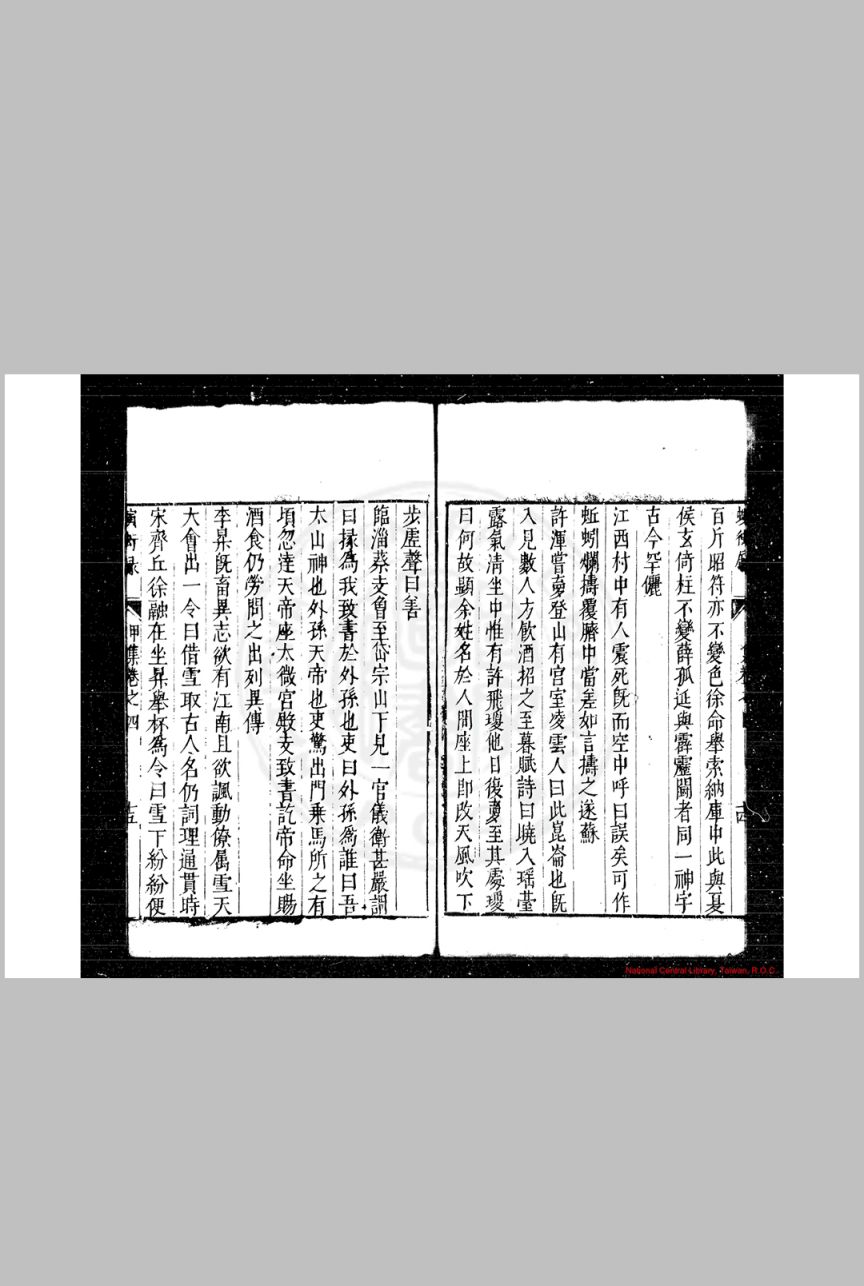 百斤昭符亦不變色徐命舉索納庫中此與夏
侯玄倚柱不變薛孤延與霹靂鬭者同一神宇
古今罕儷
江西村中有人震死旣而空中呼曰誤矣可作
蚯蚓爛擣覆臍中當差如言擣之遂蘇
許渾嘗夢登山有宮室凌雲人曰此崑崙也旣
入見數人方飲酒招之至暮賦詩曰曉入瑤臺
露氣清坐中惟有許飛瓊他日復夢至其處瓊
曰何故顯余姓名於人間座上即改天風吹下
步虛聲曰善
臨淄蔡支魯至岱宗山下見一官儀衛甚嚴謂
曰掾爲我致書於外孫也吏曰外孫爲誰曰吾
太山神也外孫天帝也吏驚出門乗馬所之有
頃忽達天帝座太微宮殿支致書訖帝命坐賜
酒食仍勞問之出列異傳
李昪旣畜異志欲有江南且欲諷動僚属雪天
大會出一令曰借雪取古人名仍詞理通貫時
宋齊丘徐融在坐昪舉杯爲令曰雪下紛紛便
甲集卷之四
National Central Library, Taiwan, R.O.C